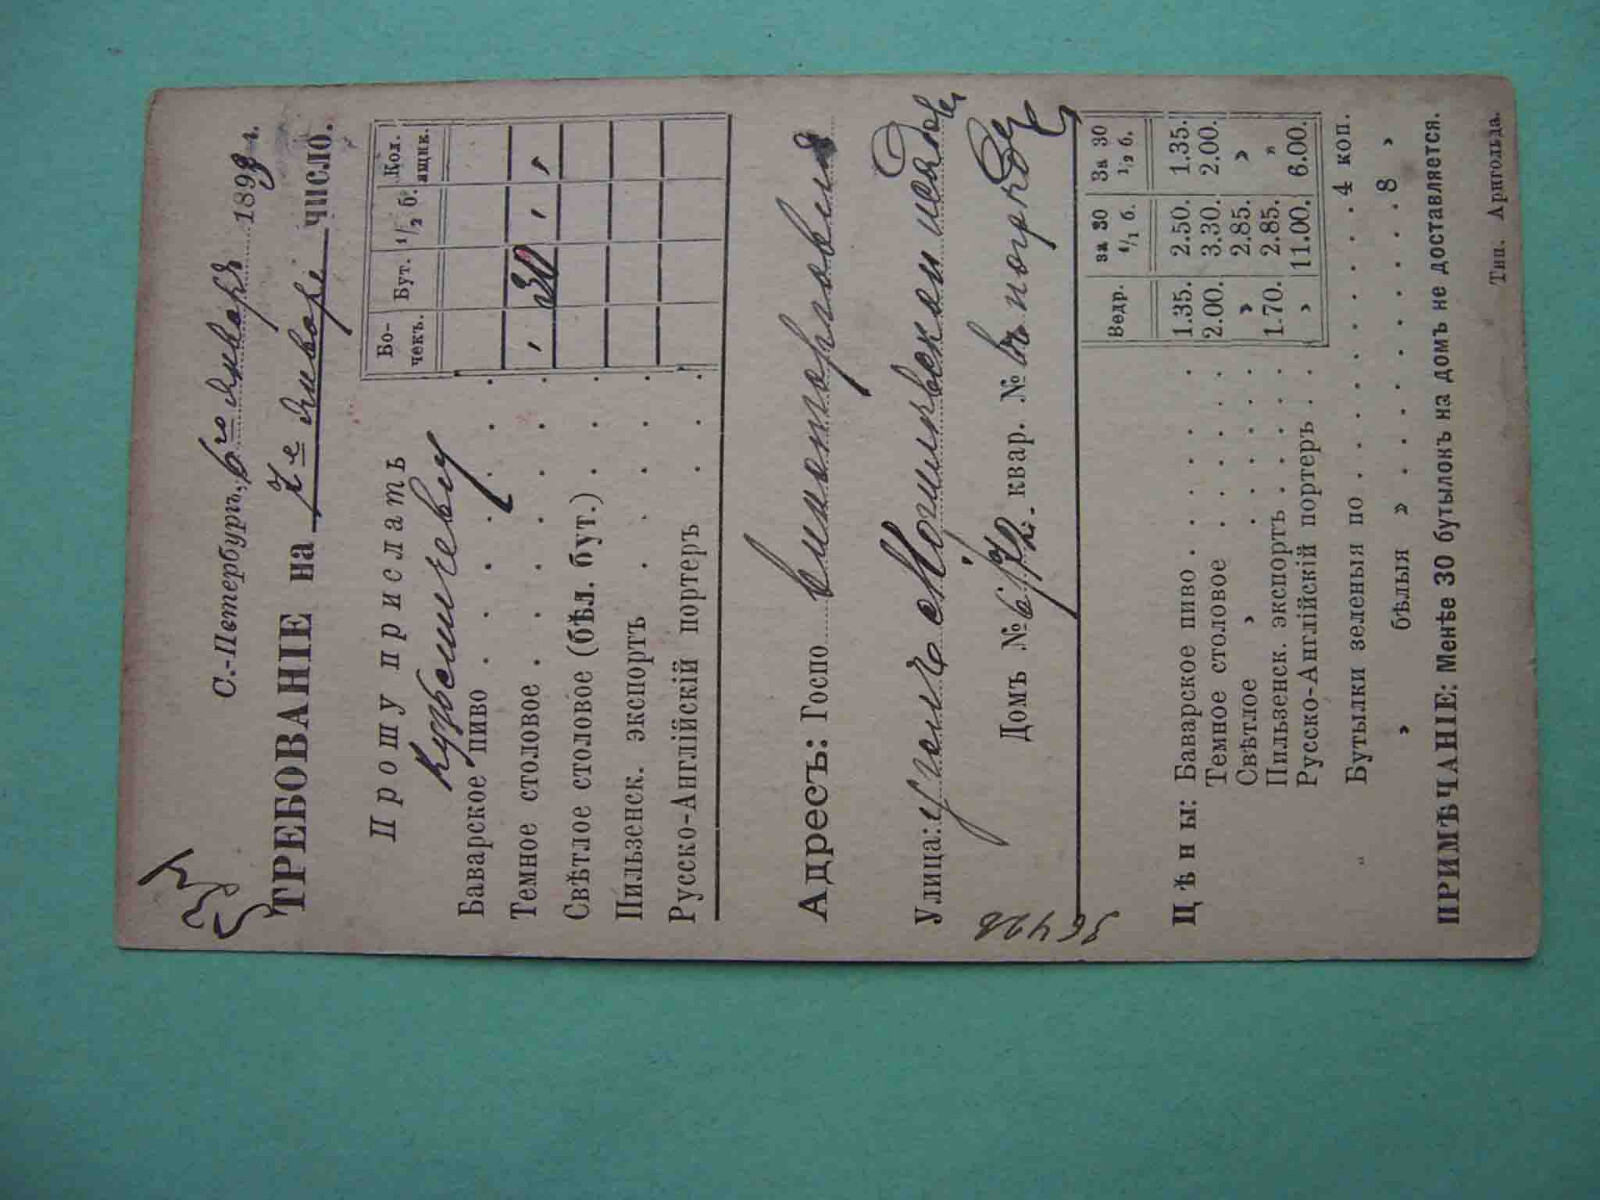 С.-Петербургъ, 6го Января 1893 г.
ТРЕБОВАНІЕ на 7е Января число.
Прошу прислать
Бо-чекъ. Бут. 1/2 б. Кол. ящик.
Баварское пиво . . . . .
Темное столовое . . . . . , 30 , ,
Свѣтлое столовое (бѣл. бут.) . . .
Пильзенск. экспортъ . . . . .
Русско-Англійскій портеръ . . .
Адресъ: Госпо
Улица: уголъ
Домъ № 6/2. квар. № въ
36426
Ведр. за 30 1/1 б. За 30 1/2 б.
Цѣны: Баварское пиво . . . . . 1.35. 2.50. 1.35.
Темное столовое . . . . 2.00. 3.30. 2.00.
Свѣтлое » . . . . . » 2.85. »
Пильзенск. экспортъ . . . . 1.70. 2.85. »
Русско-Англійскій портеръ . . » 11.00. 6.00.
Бутылки зеленыя по . . . . . . . . 4 коп.
» бѣлыя » . . . . . . . . 8 »
ПРИМѢЧАНІЕ: Менѣе 30 бутылокъ на домъ не доставляется.
Тип. Арнгольда.